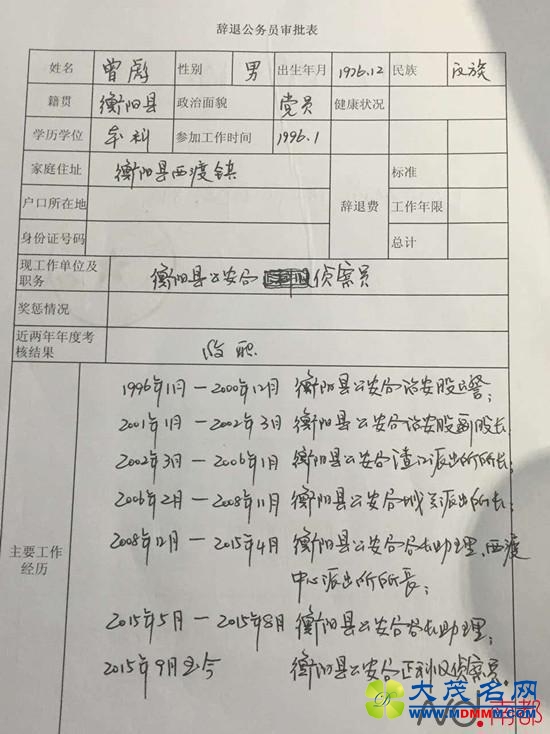 辞退公务员审批表
姓名 曾彪 性别 男 出生年月 1976.12 民族 汉族
籍贯 衡阳县 政治面貌 党员 健康状况
学历学位 本科 参加工作时间 1996.1
家庭住址 衡阳县西渡镇 辞退费 标准
户口所在地 工作年限
身份证号码 总计
现工作单位及职务 衡阳县公安局 侦察员
奖惩情况
近两年年度考核结果 称职
主要工作经历
1996年1月—2000年12月 衡阳县公安局治安股民警;
2001年1月—2002年3月 衡阳县公安局治安股副股长
2002年3月—2006年1月 衡阳县公安局渣江派出所所长;
2006年2月—2008年11月 衡阳县公安局城关派出所长;
2008年12月—2015年4月 衡阳县公安局局长助理、西渡
中心派出所所长;
2015年5月—2015年8月 衡阳县公安局局长助理;
2015年9月至今 衡阳县公安局正科级侦察员.
大茂名网
WWW.MDMMM.COM
南都